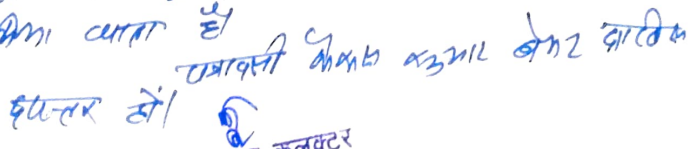 किया जाता है
पत्रावली फैसल शुमार होकर दाखिल
दफ्तर हो।
कलक्टर